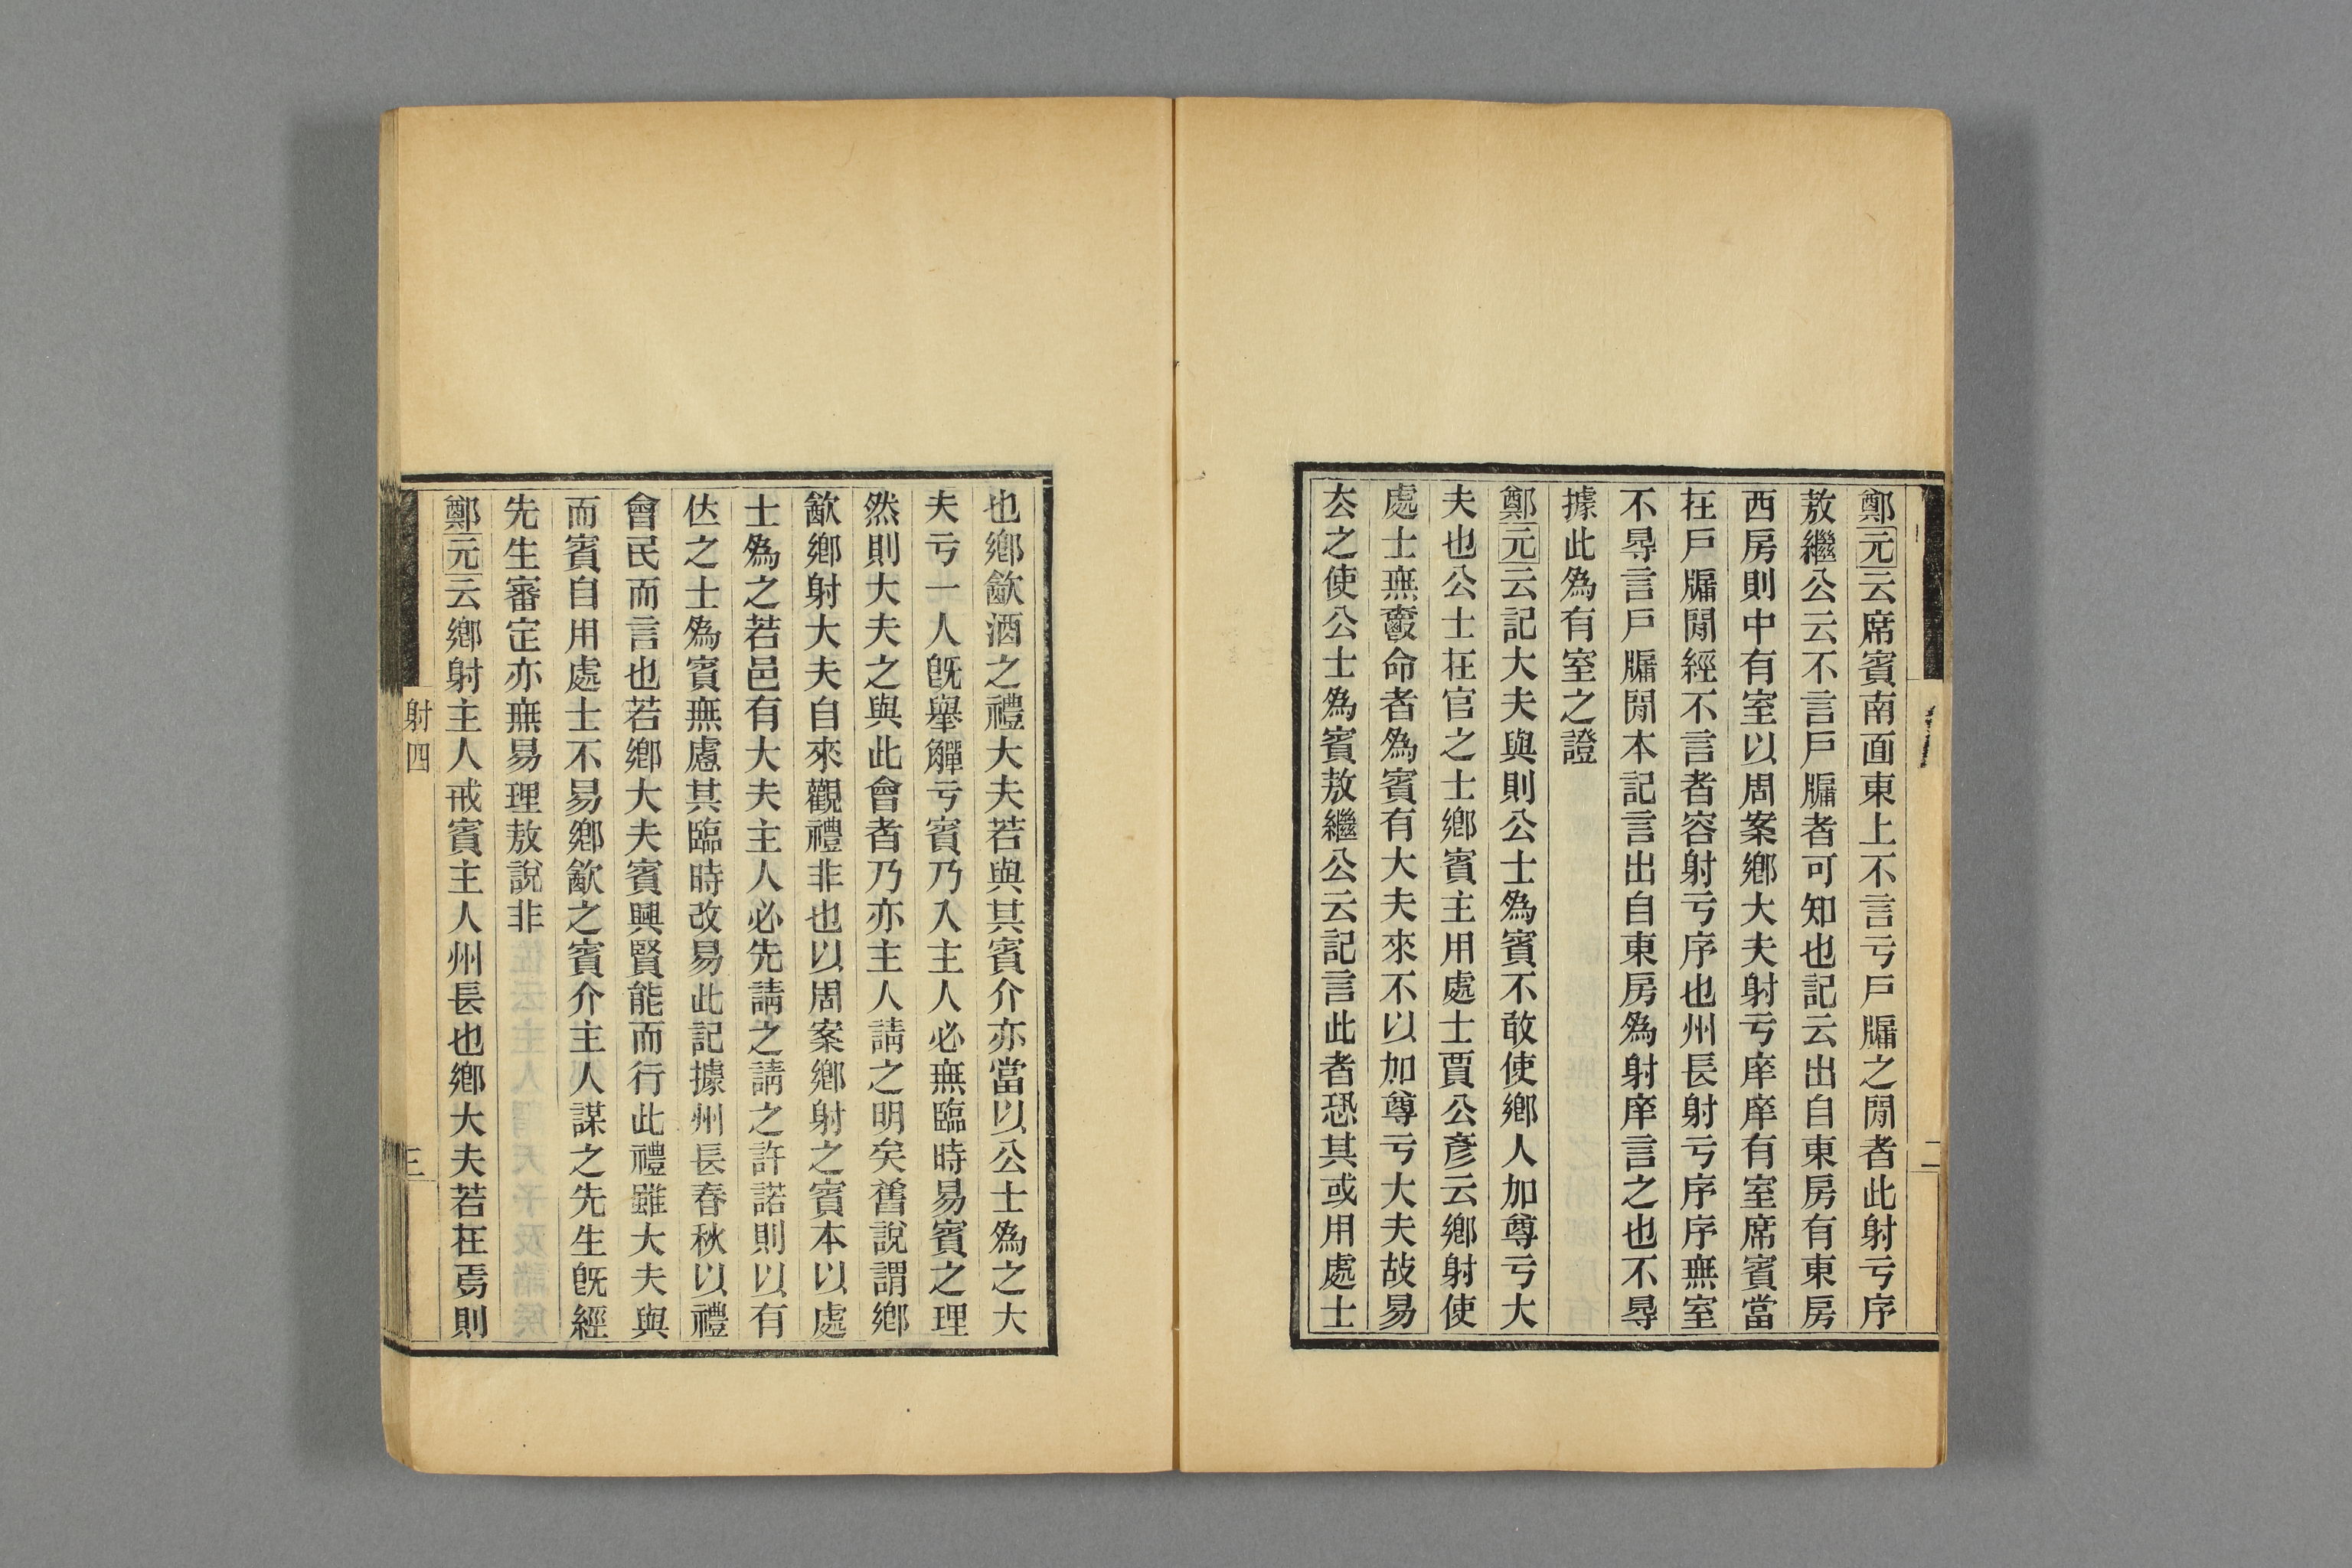 鄭元云席賓南面東上不言亏戶牖之閒者此射亏序
敖繼公云不言戶牖者可知也記云出自東房有東房
西房則中有室以周案鄉大夫射亏庠庠有室席賓當
在戶牖閒經不言者容射亏序也州長射亏序序無室
不㝵言戶牖閒本記言出自東房爲射庠言之也不㝵
據此爲有室之證
鄭元云記大夫與則公士爲賓不敢使鄉人加尊亏大
夫也公士在官之士鄉賓主用處士賈公彥云鄉射使
處士無爵命者爲賓有大夫來不以加尊亏大夫故易
去之使公士爲賓敖繼公云記言此者恐其或用處士
也鄉㱃酒之禮大夫若與其賓介亦當以公士爲之大
夫亏一人旣舉觶亏賓乃入主人必無臨時易賓之理
然則大夫之與此會者乃亦主人請之明矣舊說謂鄉
㱃鄉射大夫自來觀禮非也以周案鄉射之賓本以處
士爲之若邑有大夫主人必先請之請之許諾則以有
位之士爲賓無慮其臨時改易此記據州長春秋以禮
會民而言也若鄉大夫賓興賢能而行此禮雖大夫與
而賓自用處士不易鄉㱃之賓介主人謀之先生旣經
先生審定亦無易理敖說非
鄭元云鄉射主人戒賓主人州長也鄉大夫若在焉則
射四
三
二